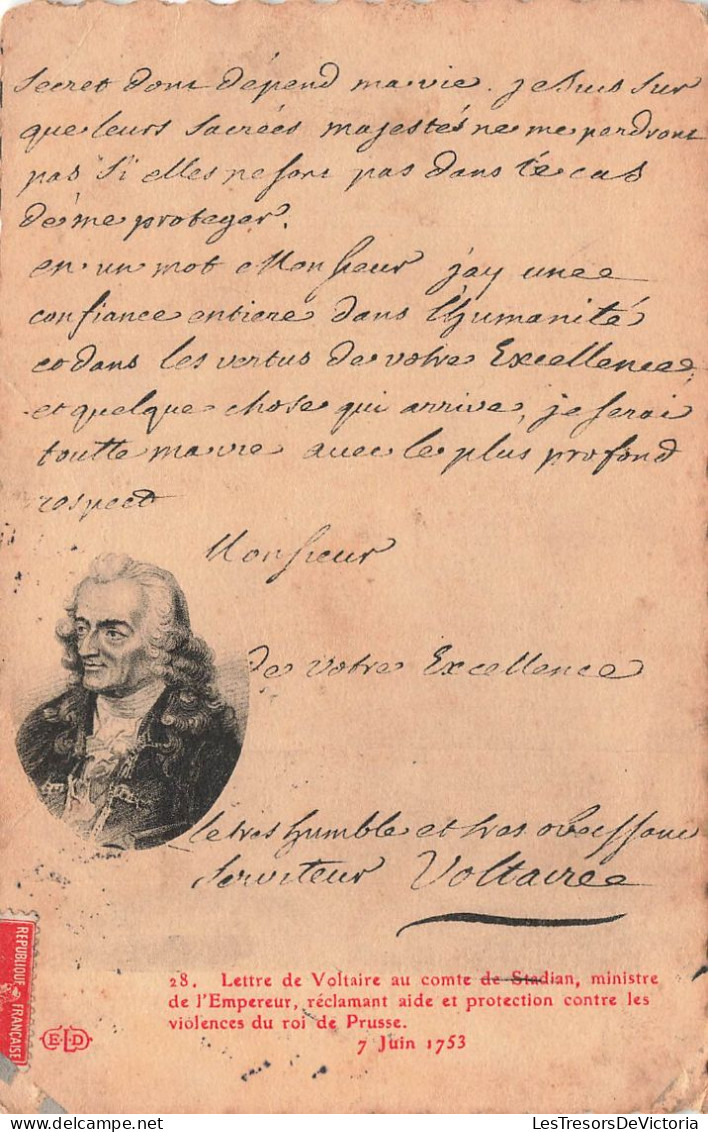 secret dont dépend ma vie. je suis sur
que leurs sacrées majestés ne me perdront
pas si elles ne sont pas dans le cas
de me proteger.
en un mot Monsieur j'ay une
confiance entiere dans l'humanité
et dans les vertus de votre Excellence
et quelque chose qui arrive, je serai
toutte ma vie avec le plus profond
respect
Monsieur
de votre Excellence
le tres humble et tres obeissant
serviteur Voltaire
28. Lettre de Voltaire au comte de Stadian, ministre
de l'Empereur, réclamant aide et protection contre les
violences du roi de Prusse.
7 Juin 1753
E.L.D
REPUBLIQUE FRANÇAISE
LesTresorsDeVictoria
www.delcampe.net